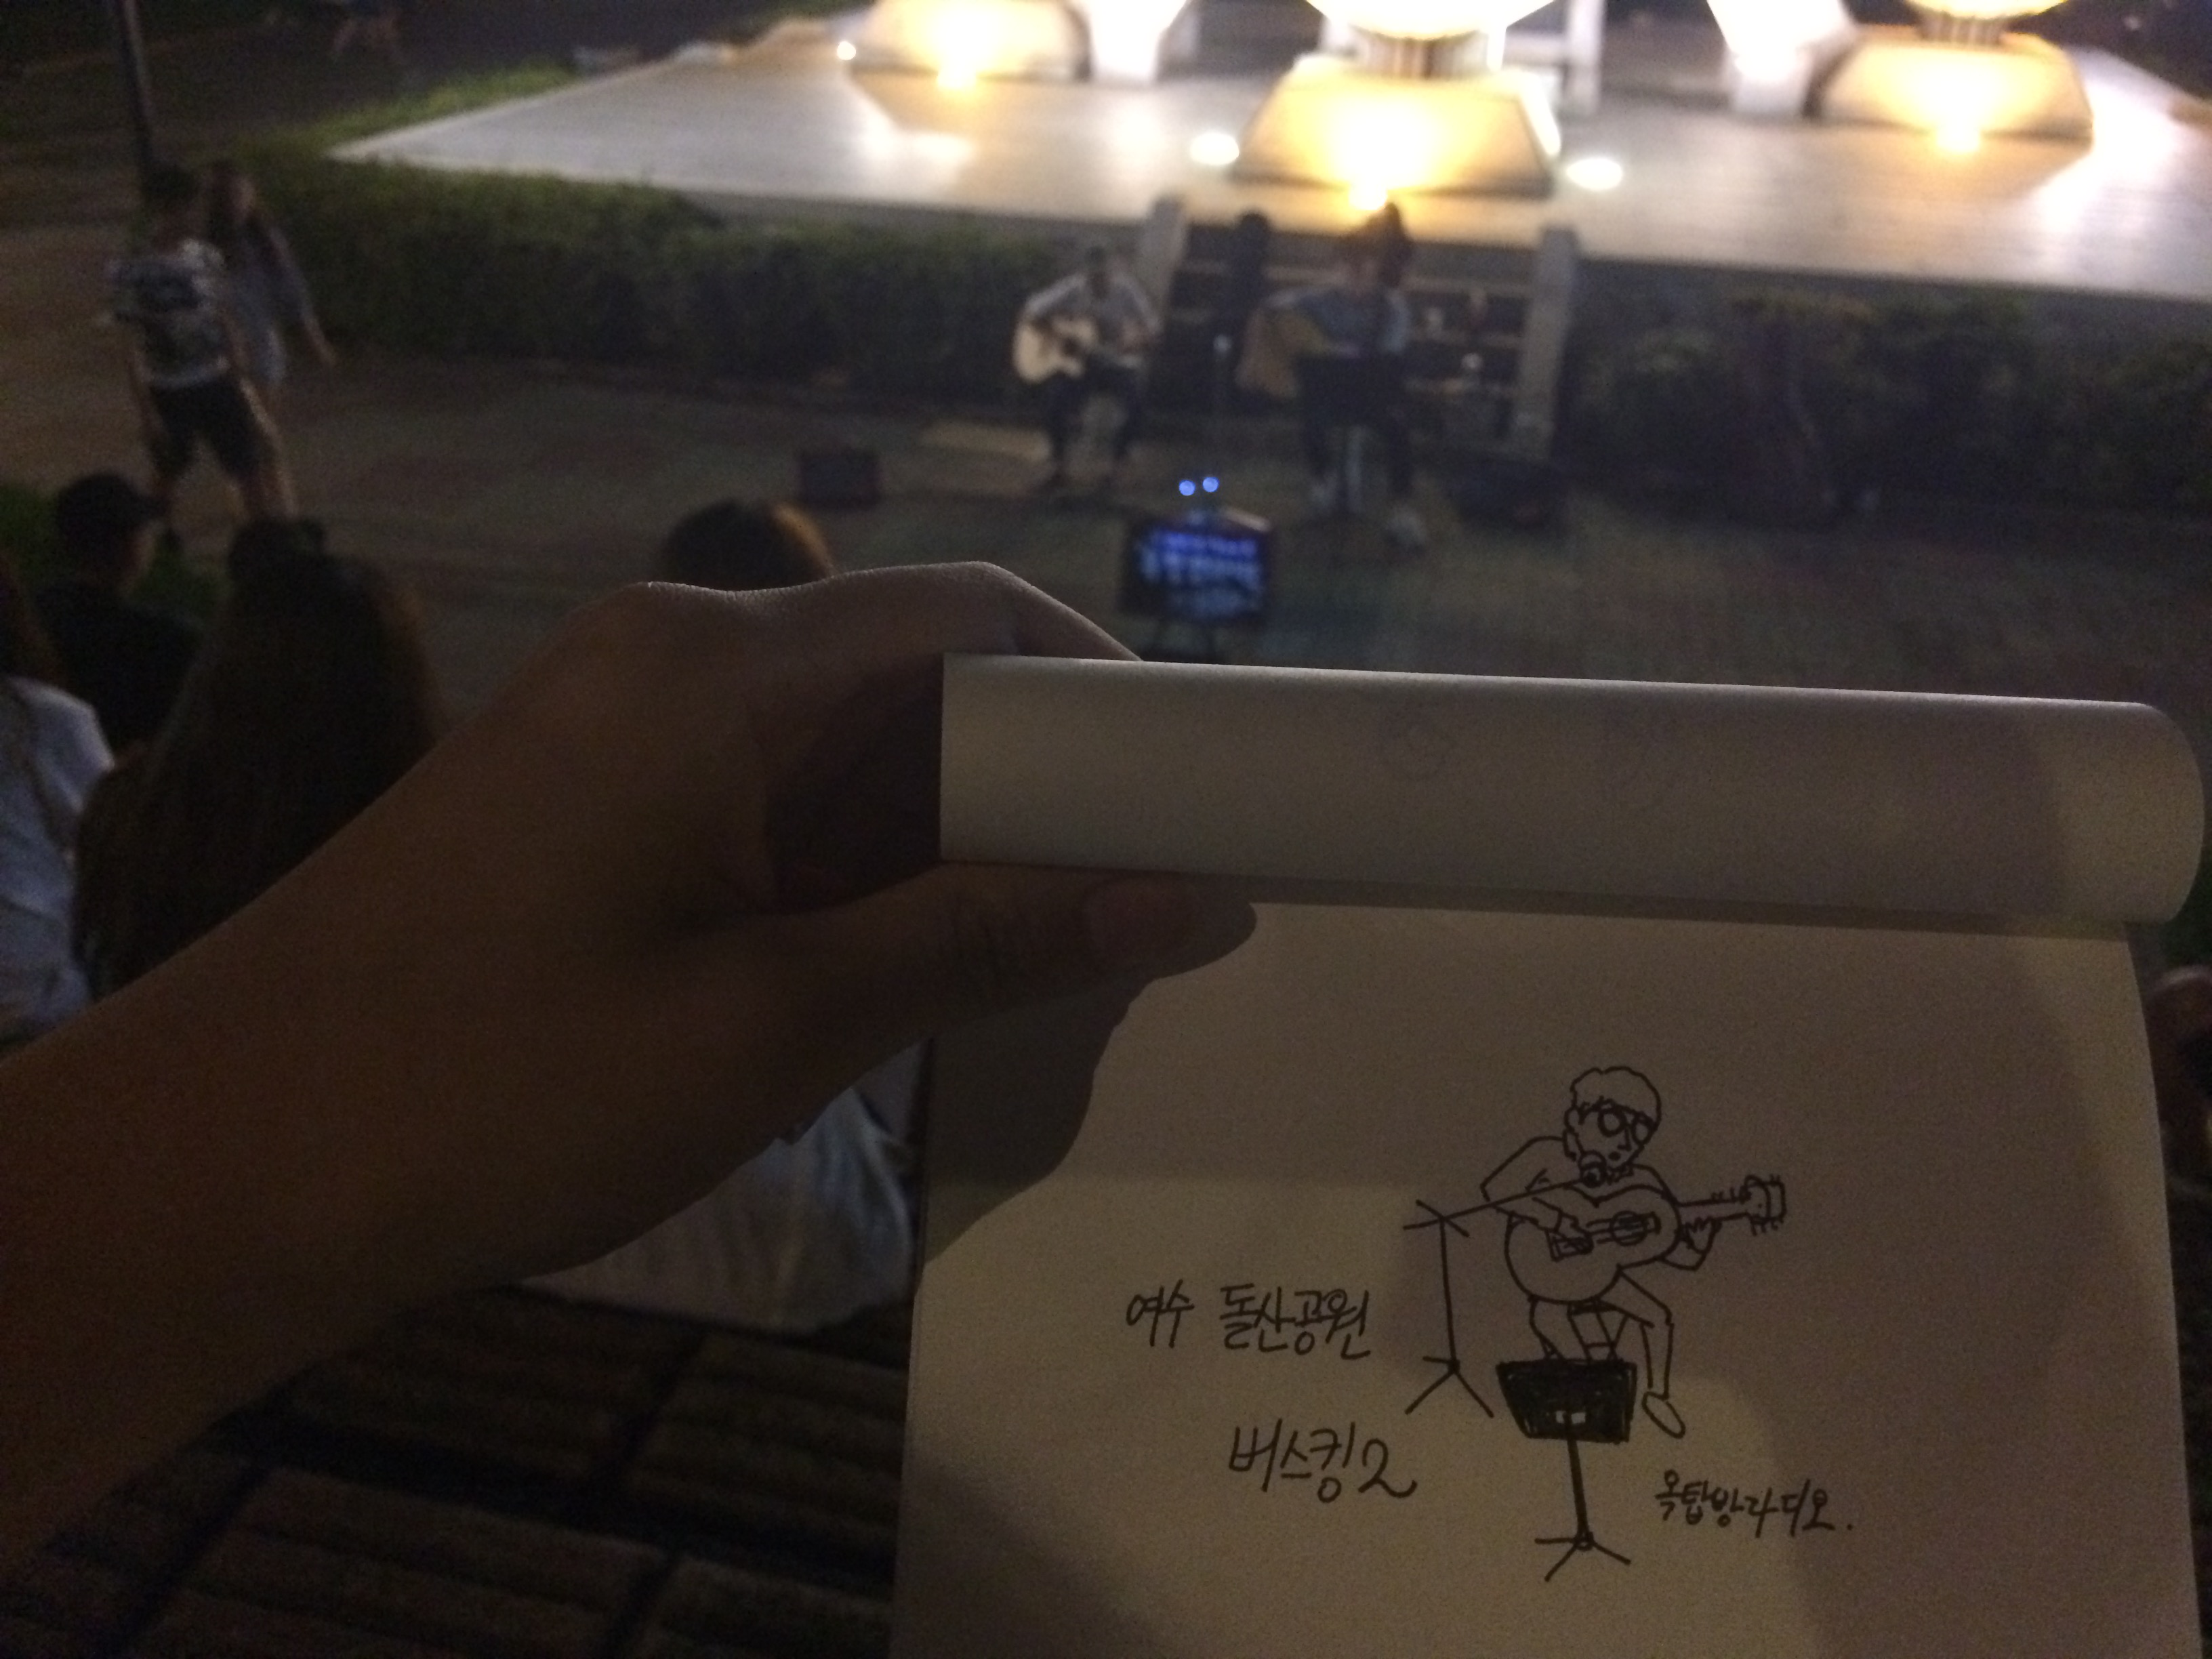 여수 돌산공원
버스킹2
옥탑방라디오.